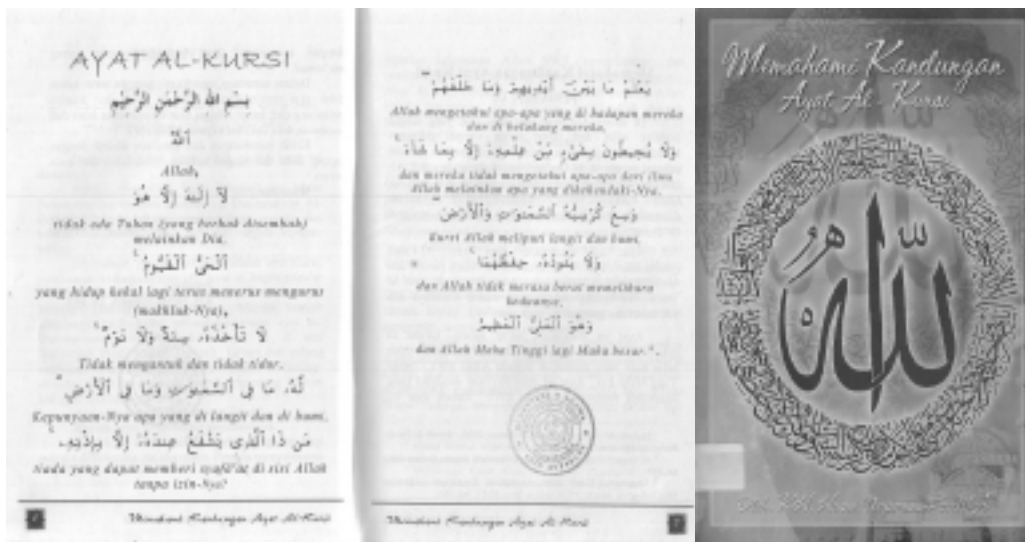 AYAT AL-KURSI
بِسْمِ اللهِ الرَّحْمٰنِ الرَّحِيْمِ
ٱللَّهُ
Allah,
لَآ إِلَـٰهَ إِلَّا هُوَ
tidak ada Tuhan (yang berhak disembah)
melainkan Dia,
ٱلْحَىُّ ٱلْقَيُّومُ ۚ
yang hidup kekal lagi terus menerus mengurus
(makhluk-Nya),
لَا تَأْخُذُهُۥ سِنَةٌ وَلَا نَوْمٌ ۚ
Tidak mengantuk dan tidak tidur.
لَّهُۥ مَا فِى ٱلسَّمَـٰوَٰتِ وَمَا فِى ٱلْأَرْضِ ۗ
Kepunyaan-Nya apa yang di langit dan di bumi,
مَن ذَا ٱلَّذِى يَشْفَعُ عِندَهُۥٓ إِلَّا بِإِذْنِهِۦ ۚ
yang dapat memberi syafa'at di sisi Allah
tanpa izin-Nya?
Memahami Kandungan Ayat Al-Kursi
يَعْلَمُ مَا بَيْنَ أَيْدِيهِمْ وَمَا خَلْفَهُمْ ۖ
Allah mengetahui apa-apa yang di hadapan mereka
dan di belakang mereka,
وَلَا يُحِيطُونَ بِشَىْءٍ مِّنْ عِلْمِهِۦٓ إِلَّا بِمَا شَآءَ ۚ
dan mereka tidak mengetahui apa-apa dari ilmu
Allah melainkan apa yang dikehendaki-Nya.
وَسِعَ كُرْسِيُّهُ ٱلسَّمَـٰوَٰتِ وَٱلْأَرْضَ ۖ
Kursi Allah meliputi langit dan bumi,
وَلَا يَـُٔودُهُۥ حِفْظُهُمَا ۚ
dan Allah tidak merasa berat memelihara
keduanya,
وَهُوَ ٱلْعَلِىُّ ٱلْعَظِيمُ
dan Allah Maha Tinggi lagi Maha besar.".
Memahami Kandungan Ayat Al-Kursi
Memahami Kandungan
Ayat Al-Kursi
الله